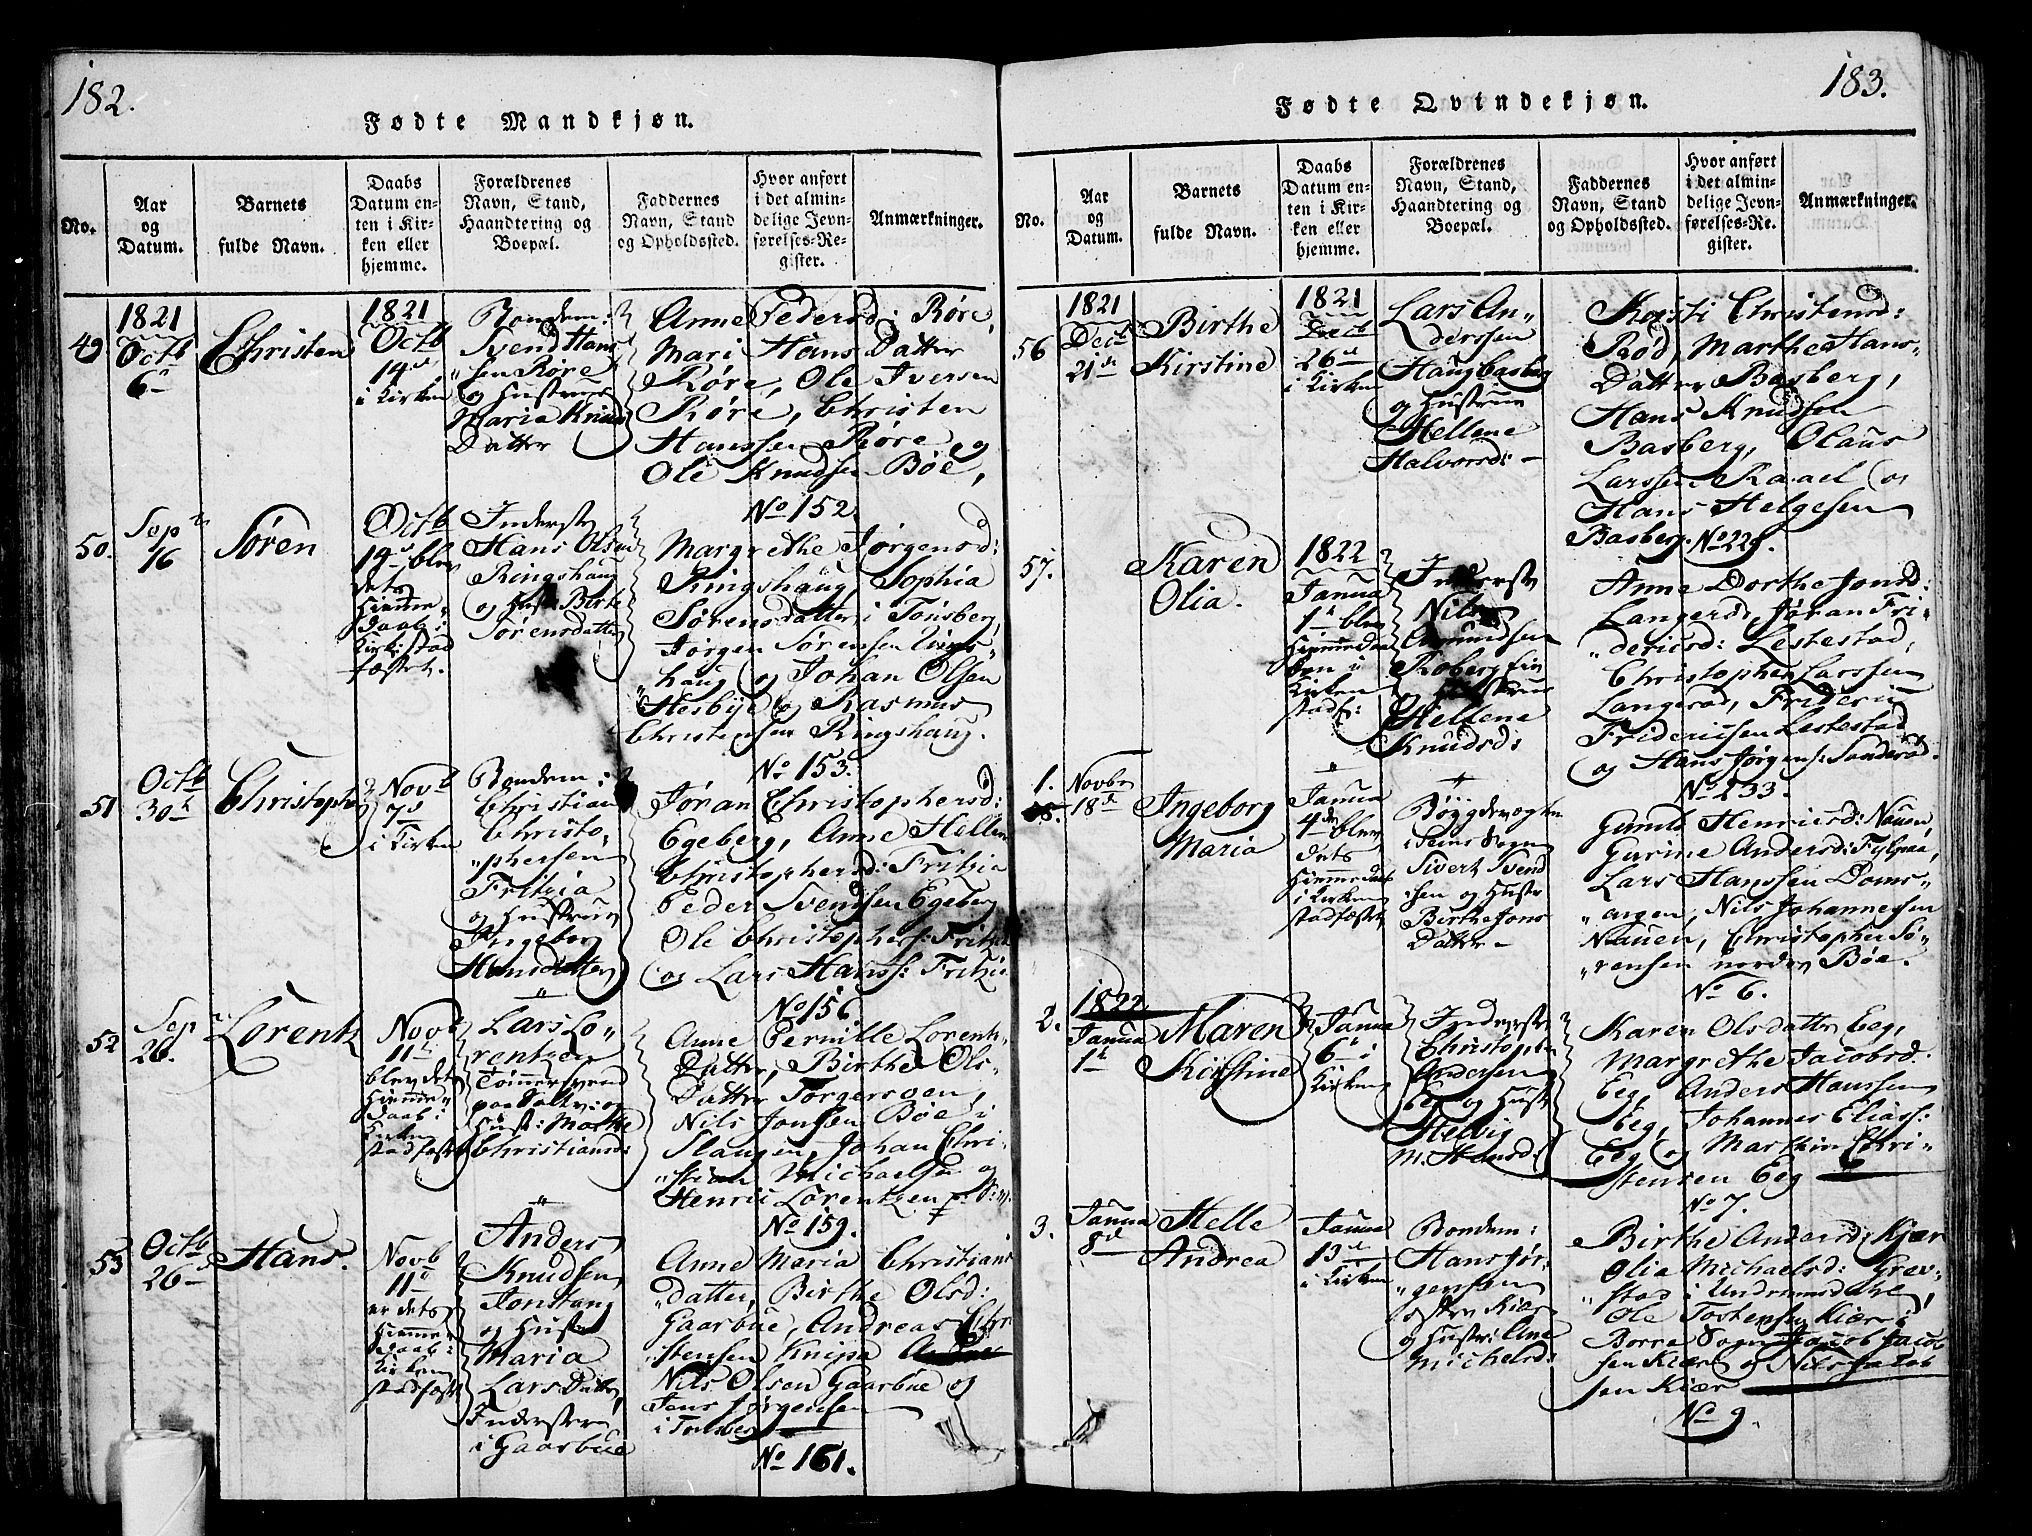 182.
Fødte Mandkjøn.
No.
Aar
og
Datum.
Barnets
fulde Navn.
Daabs
Datum en-
ten i Kir-
ken eller
hjemme.
Forældrenes
Navn, Stand,
Haandtering og
Boepæl.
Faddernes
Navn, Stand
og Opholdssted.
Hvor anført
i det almin-
delige Jevn-
førelses-Re-
gister.
Anmærkninger.
49
1821
Octb
6
Christen
1821
Octb
14
i Kirken
Bondem:
Svend Hans
sen Røre
og Hustrue
Maria Knuds
Datter
Anne Pedersd: Røre,
Mari Hans Datter
Røre, Ole Iversen
Røre, Christen
Hanssen Røre og
Ole Knudsen Bøe,
No 152
50.
Sep
16
Søren
Octb
14 blev
dets
Hiemme
Daab i
Kirk: stad
fæstet.
Inderste
Hans Olsen
Ringshaug
og Hust: Birte
Sørensdatter
Margrethe Jørgensd:
Ringshaug, Sophia
Sørensdatter i Tønsberg,
Jørgen Sørensen Rings-
haug og Johan Olsen
Hesbye og Rasmus
Christensen Ringshaug.
No 153.
51
Octb
30
Christopher
Novb
7
i Kirken
Bondem:
Christian
Christo-
phersen
Fritzia
og Hustrue
Ingeborg
Hansdatter
Jøran Christophersd:
Egeberg, Anne Hellene
Christophersd: Fritzia
Peder Svendsen Egeberg
Ole Christophers: Fritzia
og Lars Hanss: Fritzia
No 156.
52
Sep
26.
Lorentz
Novb
11
blev det
Hiemme
Daab i
Kirken
stadfæstet
Lars Lo-
rentzen
Tømmersvend
paa Valløe og
Hust: Marthe
Christiansd:
Anne Pernille Lorentz
Datter, Birthe Ols-
Datter Torgersøen,
Nils Jonsen Bøe i
Slagen, Johan Chri-
stian Michaelsen og
Henric Lorentzen
No 159.
53
Octb
26
Hans.
Novb
11
er dets
Hiemme
Daab i
Kirken
stadfæst
Anders
Knudsen
Jonstang
og Hustrue
Maria
Lars Datter
Inderster
i Gaarbue
Anne Maria Christians
datter, Birthe Olsd:
Gaarbue, Andreas Chri
stensen Knipa
Nils Olsen Gaarbue og
Jens Jørgensen
i Tønsberg
No 161.
183.
Fødte Qvindekjøn.
No.
Aar
og
Datum.
Barnets
fulde Navn.
Daabs
Datum en-
ten i Kir-
ken eller
hjemme.
Forældrenes
Navn, Stand,
Haandtering og
Boepæl.
Faddernes
Navn, Stand
og Opholdssted.
Hvor anført
i det almin-
delige Jevn-
førelses-Re-
gister.
Anmærkninger.
56
1821
Decb
21
Birthe
Kirstine
1821
Decb
26
i Kirken
Lars An-
derssen
Haugbasberg
og Hustrue
Hellene
Halvorsd:
Kirsti Christensd:
Rød, Marthe Hans-
Datter Basberg,
Hans Knudsen
Basberg, Olaus
Larssen Raael og
Hans Helgesen
Basberg. No 228.
57.
Karen
Olia.
1822
Janua
1 blev
Hiemmeda
ben i
Kirken
stadf:
Inderste
Nils
Amundsen
Roberg
og Hustrue
Hellene
Knudsd:
Anne Dorthe Jonsd:
Langerød, Jøran Fri-
dericsd: Lestestad,
Christopher Larssen
Langerød, Frideric
Fridericsen Lestestad
og Hans Jørgens: Sanderød.
No 233.
1.
Novbr
18
Ingeborg
Maria
Janua
4 blev
dets
Hiemmedaab
i Kirken
stadfæstet
Bøygdevægter
i Sems Sogn
Sivert Svend
sen og Hustr
Birthe Jons
Datter
Gunild Henricsd: Nauen,
Gurine Andersd: Fylpaa,
Lars Hanssen Doms-
orgen, Nils Johannesen
Nauen, Christopher Sø-
rensen nordre Bøe.
No 6.
2.
1822
Janua
1
Maren
Kirstine
Janua
6 i
Kirken
Inderste
Christopher
Andersen
Eeg og Hust
Helvig
M. Hansd:
Karen Olsdatter Eeg,
Margrethe Jacobsd:
Eeg, Anders Hanssen
Eeg, Johannes Eliass:
Eeg og Marthin Chri-
stensen Eeg
No 7.
3.
Janua
8
Helle
Andrea
Janua
13
i Kirken
Bondem:
Hans Jør-
gensen
østre Kiær
og Hustr: Ane
Michelsd:
Birthe Andersd: Kjær
Olia Michaelsd: Grev-
stad i Undrumsdahl,
Ole Tostensen Kiær i
Borre Sogn Jacob Jacob
sen Kiær og Nils Jacob
sen Kiær
No 9.